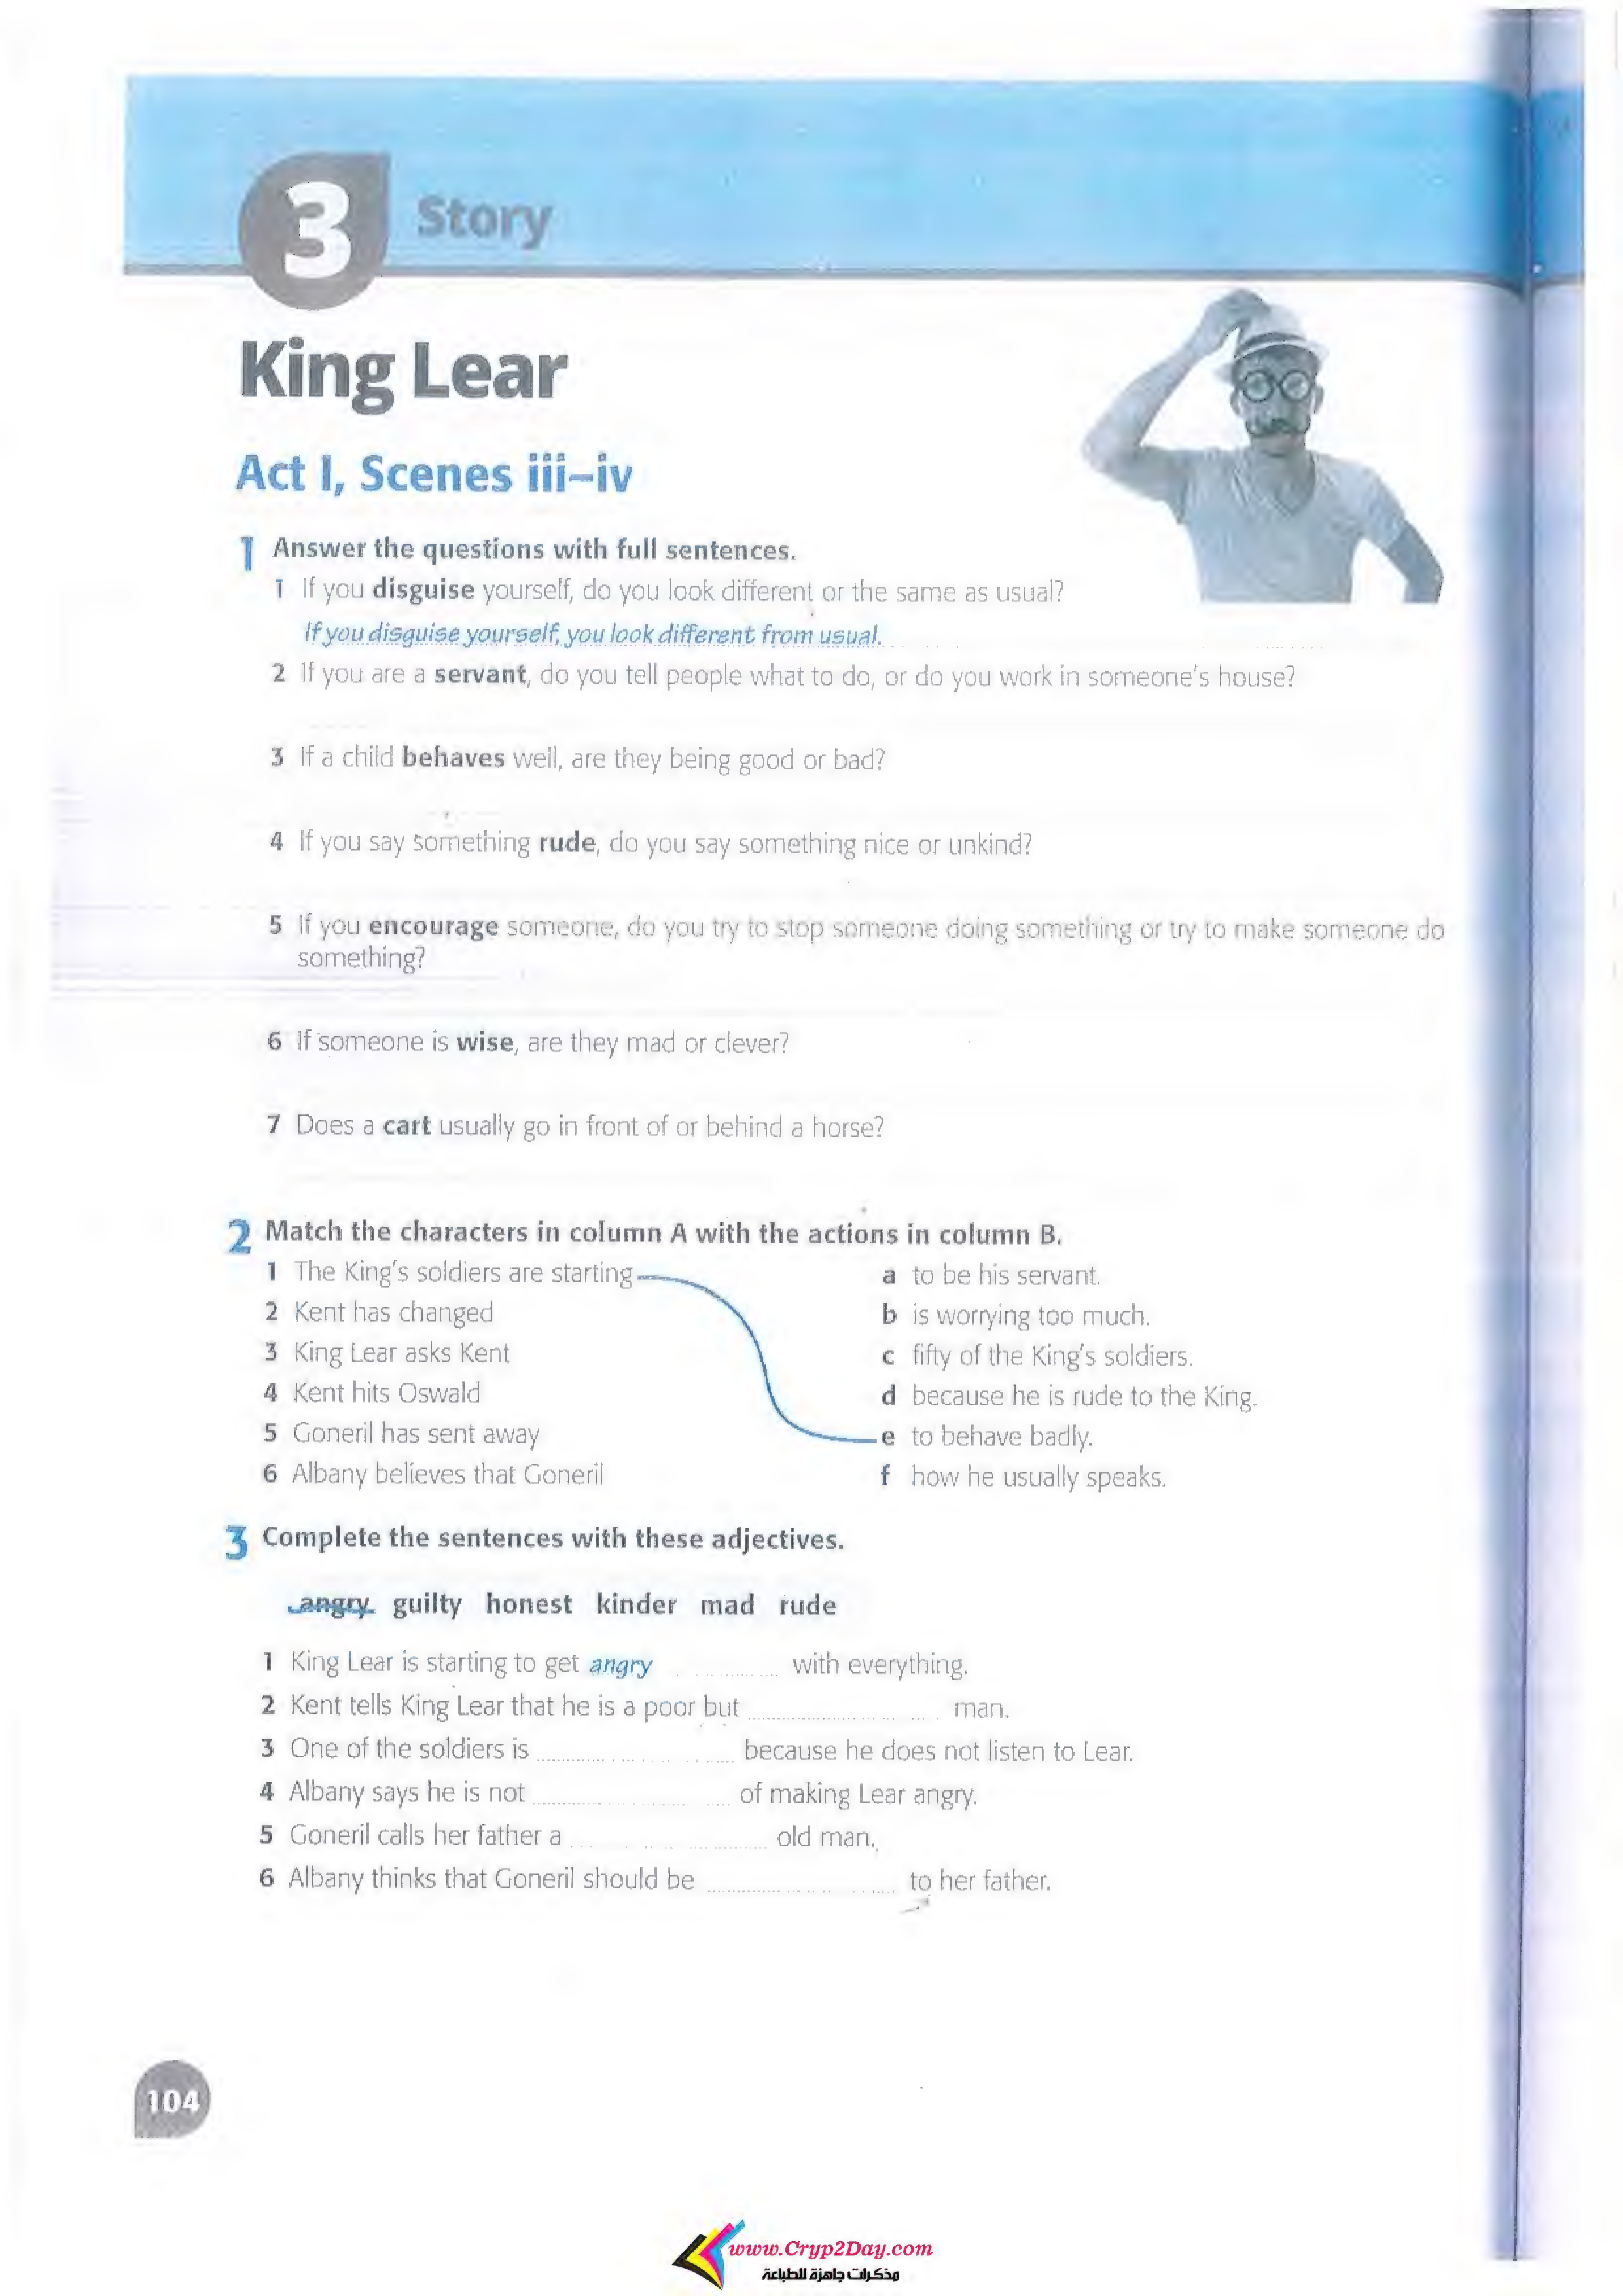 3 Story
King Lear
Act I, Scenes iii–iv
1 Answer the questions with full sentences.
1 If you disguise yourself, do you look different or the same as usual?
If you disguise yourself, you look different from usual.
2 If you are a servant, do you tell people what to do, or do you work in someone's house?
3 If a child behaves well, are they being good or bad?
4 If you say something rude, do you say something nice or unkind?
5 If you encourage someone, do you try to stop someone doing something or try to make someone do
something?
6 If someone is wise, are they mad or clever?
7 Does a cart usually go in front of or behind a horse?
2 Match the characters in column A with the actions in column B.
1 The King's soldiers are starting
2 Kent has changed
3 King Lear asks Kent
4 Kent hits Oswald
5 Goneril has sent away
6 Albany believes that Goneril
a to be his servant.
b is worrying too much.
c fifty of the King's soldiers.
d because he is rude to the King.
e to behave badly.
f how he usually speaks.
3 Complete the sentences with these adjectives.
angry guilty honest kinder mad rude
1 King Lear is starting to get angry with everything.
2 Kent tells King Lear that he is a poor but ........ man.
3 One of the soldiers is ........ because he does not listen to Lear.
4 Albany says he is not ........ of making Lear angry.
5 Goneril calls her father a ........ old man.
6 Albany thinks that Goneril should be ........ to her father.
104
www.Cryp2Day.com
مذكرات جاهزة للطباعة